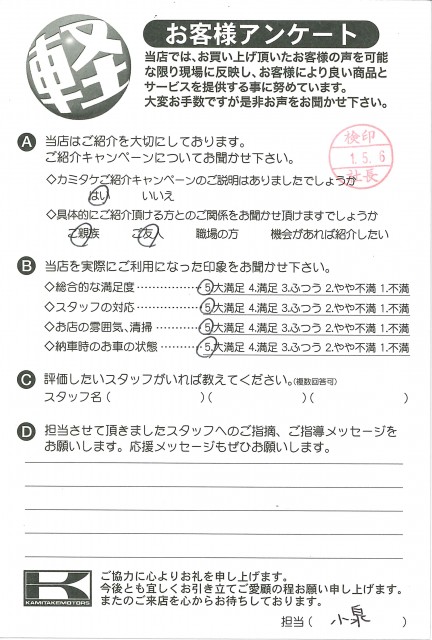 軽
お客様アンケート
当店では、お買い上げ頂いたお客様の声を可能
な限り現場に反映し、お客様により良い商品と
サービスを提供する事に努めています。
大変お手数ですが是非お声をお聞かせ下さい。
A 当店はご紹介を大切にしております。
ご紹介キャンペーンについてお聞かせ下さい。
検印
1.5.6
社長
◇カミタケご紹介キャンペーンのご説明はありましたでしょうか
はい いいえ
◇具体的にご紹介頂ける方とのご関係をお聞かせ頂けますでしょうか
ご親族 ご友人 職場の方 機会があれば紹介したい
B 当店を実際にご利用になった印象をお聞かせ下さい。
◇総合的な満足度……………5.大満足 4.満足 3.ふつう 2.やや不満 1.不満
◇スタッフの対応……………5.大満足 4.満足 3.ふつう 2.やや不満 1.不満
◇お店の雰囲気、清掃………5.大満足 4.満足 3.ふつう 2.やや不満 1.不満
◇納車時のお車の状態………5.大満足 4.満足 3.ふつう 2.やや不満 1.不満
C 評価したいスタッフがいれば教えてください。(複数回答可)
スタッフ名( )( )( )
D 担当させて頂きましたスタッフへのご指摘、ご指導メッセージを
お願いします。応援メッセージもぜひお願いします。
K
KAMITAKEMOTORS
ご協力に心よりお礼を申し上げます。
今後とも宜しくお引き立てご愛顧の程お願い申し上げます。
またのご来店を心からお待ちしております。
担当( 小泉 )